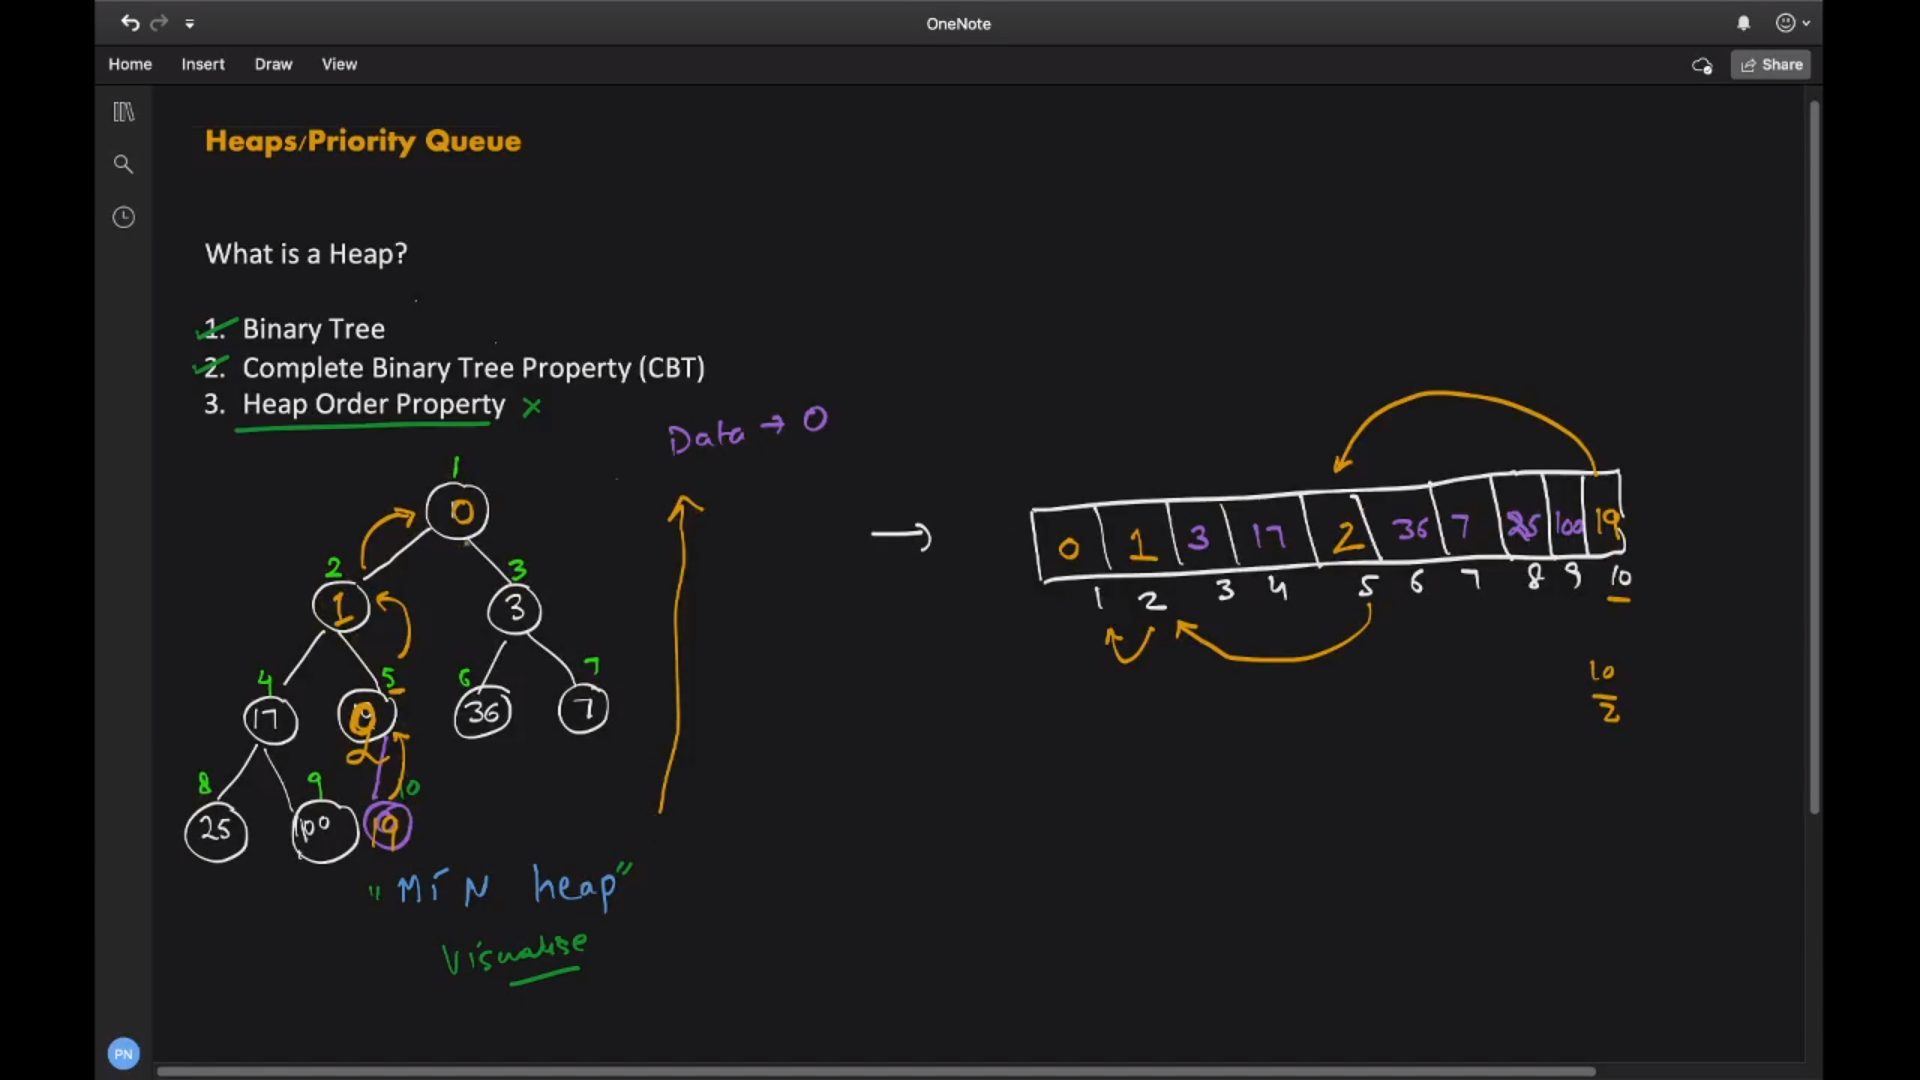 OneNote
Home Insert Draw View Share
Heaps/Priority Queue
What is a Heap?
1. Binary Tree
2. Complete Binary Tree Property (CBT)
3. Heap Order Property ×
Data → 0
1
0
2 3
1 3
4 5 6 7
17 2 36 7
8 9 10
25 100 19
"MIN heap"
Visualise
→
0 1 3 17 2 36 7 25 100 19
1 2 3 4 5 6 7 8 9 10
10
2
PN